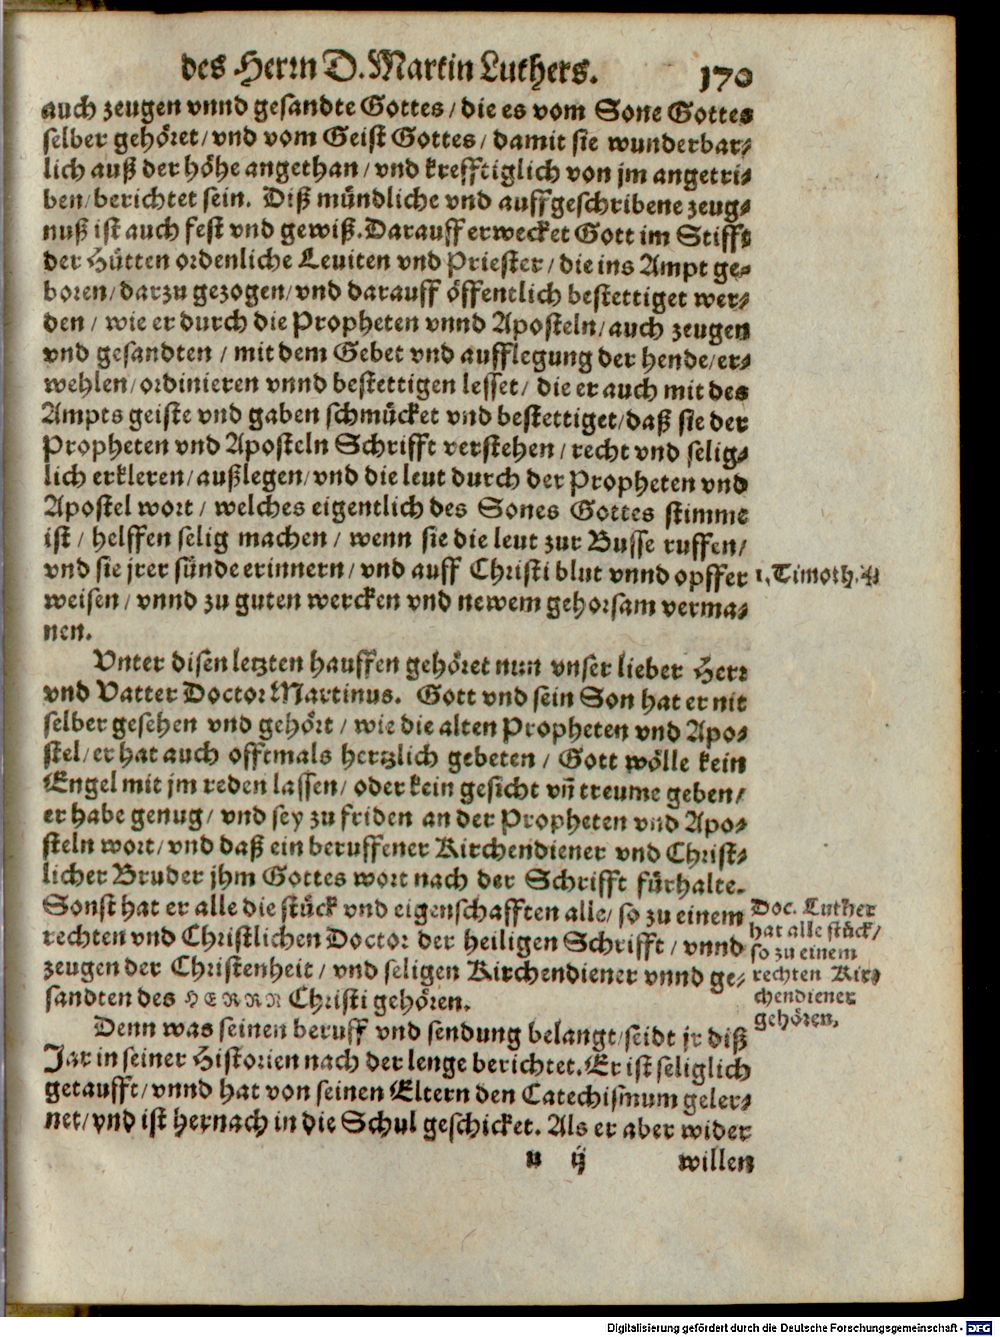 des Herrn D. Martin Luthers. 170
auch zeugen vnnd gesandte Gottes / die es vom Sone Gottes
selber gehöret / vnd vom Geist Gottes / damit sie wunderbar⸗
lich auß der höhe angethan / vnd krefftiglich von jm angetri⸗
ben / berichtet sein. Diß mündliche vnd auffgeschribene zeug⸗
nuß ist auch fest vnd gewiß. Darauff erwecket Gott im Stifft
der Hütten ordenliche Leuiten vnd Priester / die ins Ampt ge⸗
boren / darzu gezogen / vnd darauff öffentlich bestettiget wer⸗
den / wie er durch die Propheten vnnd Aposteln / auch zeugen
vnd gesandten / mit dem Gebet vnd aufflegung der hende / er⸗
wehlen / ordinieren vnnd bestettigen lesset / die er auch mit des
Ampts geiste vnd gaben schmücket vnd bestettiget / daß sie der
Propheten vnd Aposteln Schrifft verstehen / recht vnd selig⸗
lich erkleren / außlegen / vnd die leut durch der Propheten vnd
Apostel wort / welches eigentlich des Sones Gottes stimme
ist / helffen selig machen / wenn sie die leut zur Busse ruffen /
vnd sie jrer sünde erinnern / vnd auff Christi blut vnnd opffer
1. Timoth. 4
weisen / vnnd zu guten wercken vnd newem gehorsam verma⸗
nen.
Vnter disen letzten hauffen gehöret nun vnser lieber Herr
vnd Vatter Doctor Martinus. Gott vnd sein Son hat er nit
selber gesehen vnd gehört / wie die alten Propheten vnd Apo⸗
stel / er hat auch offtmals hertzlich gebeten / Gott wölle kein
Engel mit jm reden lassen / oder kein gesicht vñ treume geben /
er habe genug / vnd sey zu friden an der Propheten vnd Apo⸗
steln wort / vnd daß ein beruffener Kirchendiener vnd Christ⸗
licher Bruder jhm Gottes wort nach der Schrifft fürhalte.
Sonst hat er alle die stück vnd eigenschafften alle / so zu einem
rechten vnd Christlichen Doctor der heiligen Schrifft / vnnd
zeugen der Christenheit / vnd seligen Kirchendiener vnnd ge⸗
sandten des HERRN Christi gehören.
Doc. Luther
hat alle stück /
so zu einem
rechten Kir⸗
chendiener
gehören.
Denn was seinen beruff vnd sendung belangt / seidt jr diß
Jar in seiner Historien nach der lenge berichtet. Er ist seliglich
getaufft / vnnd hat von seinen Eltern den Catechismum geler⸗
net / vnd ist hernach in die Schul geschicket. Als er aber wider
u ij willen
Digitalisierung gefördert durch die Deutsche Forschungsgemeinschaft - DFG